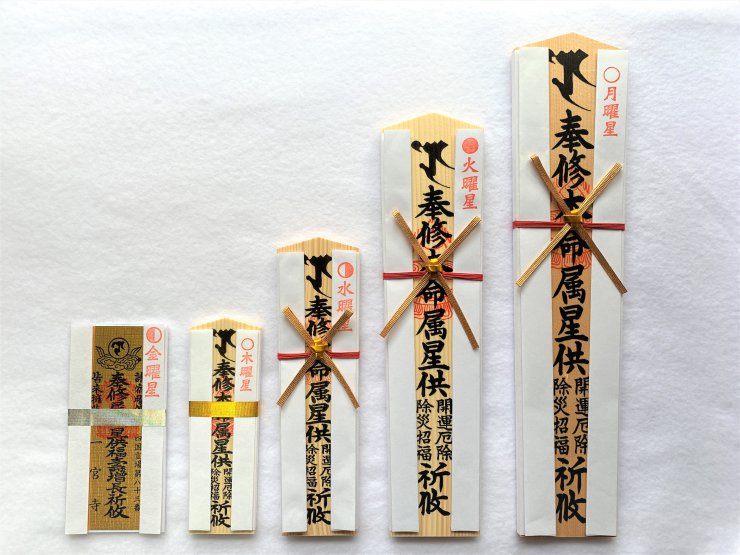 月曜星
奉修本命属星供
開運厄除
除災招福
祈攸
火曜星
奉修本命属星供
開運厄除
除災招福
祈攸
水曜星
奉修本命属星供
開運厄除
除災招福
祈攸
木曜星
奉修本命属星供
開運厄除
除災招福
祈攸
金曜星
四国霊場第八十三番
奉修星供福寿増長祈攸
一宮寺